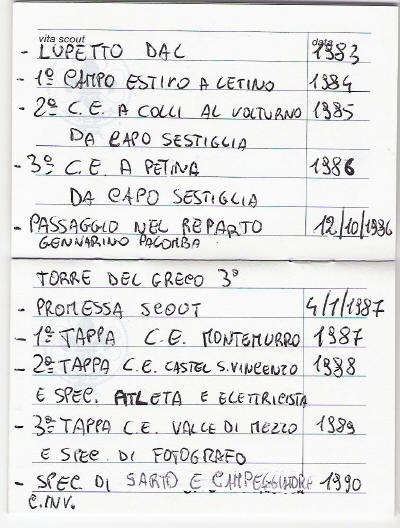 vita scout data
- LUPETTO DAL 1983
- 1º CAMPO ESTIVO A LETINO 1984
- 2º C.E. A COLLI AL VOLTURNO 1985
DA CAPO SESTIGLIA
- 3º C.E. A PETINA 1986
DA CAPO SESTIGLIA
- PASSAGGIO NEL REPARTO 12/10/1986
GENNARINO PALOMBA
TORRE DEL GRECO 3º
- PROMESSA SCOUT 4/1/1987
- 1º TAPPA C.E. MONTEMURRO 1987
- 2º TAPPA C.E. CASTEL S. VINCENZO 1988
E SPEC. ATLETA E ELETTRICISTA
- 3º TAPPA C.E. VALLE DI MEZZO 1989
E SPEC. DI FOTOGRAFO
- SPEC. DI SARTO E CAMPEGGIATORE 1990
C. INV.